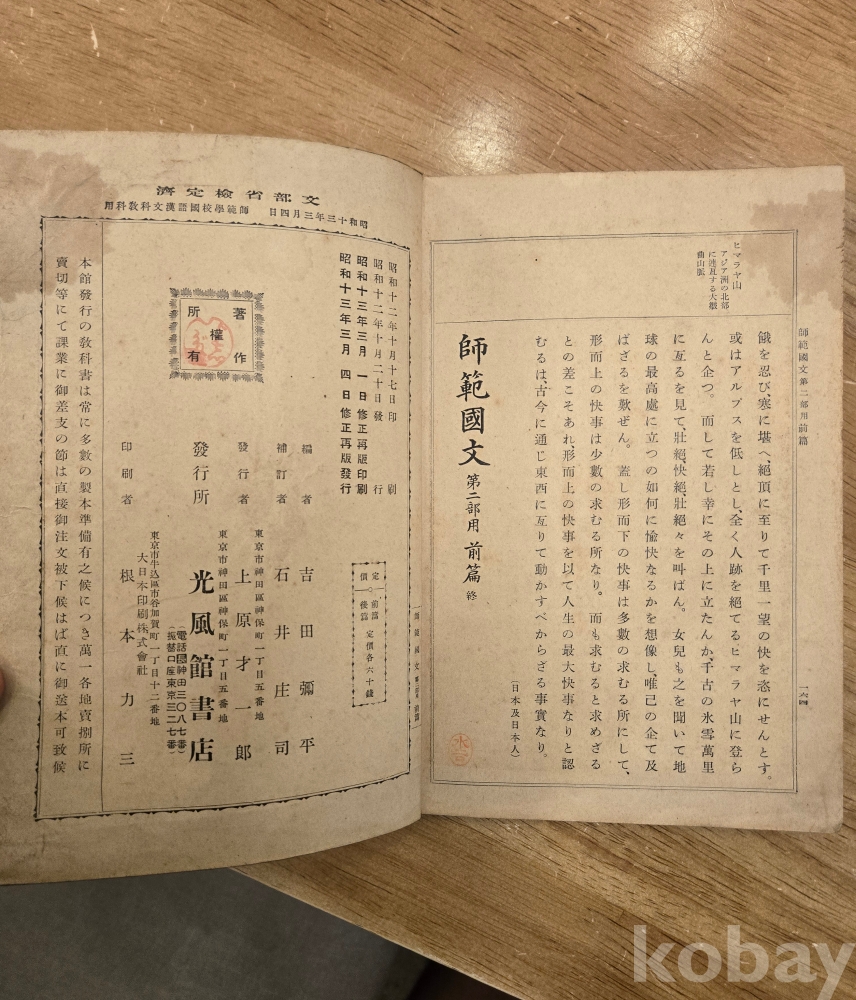 師範國文第二部用前篇
一六四
ヒマラヤ山
アジア洲の北部
に連亙する大褶
曲山脈
餓を忍び、寒に堪へ、絕頂に至りて千里一望の快を恣にせんとす。
或はアルプスを低しとし、全く人跡を絕てるヒマラヤ山に登ら
んと企つ。而して若し幸にその上に立たんか、千古の氷雪萬里
に亙るを見て、壯絕快絕壯絕々を叫ばん。女兒も之を聞いて地
球の最高處に立つの如何に愉快なるかを想像し、唯己の企て及
ばざるを歎ぜん。蓋し形而下の快事は多數の求むる所にして、
形而上の快事は少數の求むる所なり。而も求むると求めざる
との差こそあれ、形而上の快事を以て人生の最大快事なりと認
むるは、古今に通じ東西に亙りて動かすべからざる事實なり。
(日本及日本人)
師範國文 第二部用 前篇 終
文部省檢定濟
昭和十三年三月四日 師範學校國語漢文科敎科用
昭和十二年十月十七日印刷
昭和十二年十月二十日發行
昭和十三年三月一日修正再版印刷
昭和十三年三月四日修正再版發行
著作權所有
定價
前篇
後篇
定價各六十錢
編者 吉田彌平
補訂者 石井庄司
東京市神田區神保町一丁目五番地
發行者 上原才一郎
東京市神田區神保町一丁目五番地
發行所 光風館書店
電話神田三〇八七番
振替口座東京三二七番
東京市牛込區市谷加賀町一丁目十二番地
大日本印刷株式會社
印刷者 根本力三
本館發行の敎科書は常に多數の製本準備有之候につき萬一各地賣捌所に
賣切等にて課業に御差支の節は直接御注文被下候はば直に御送本可致候
kobay